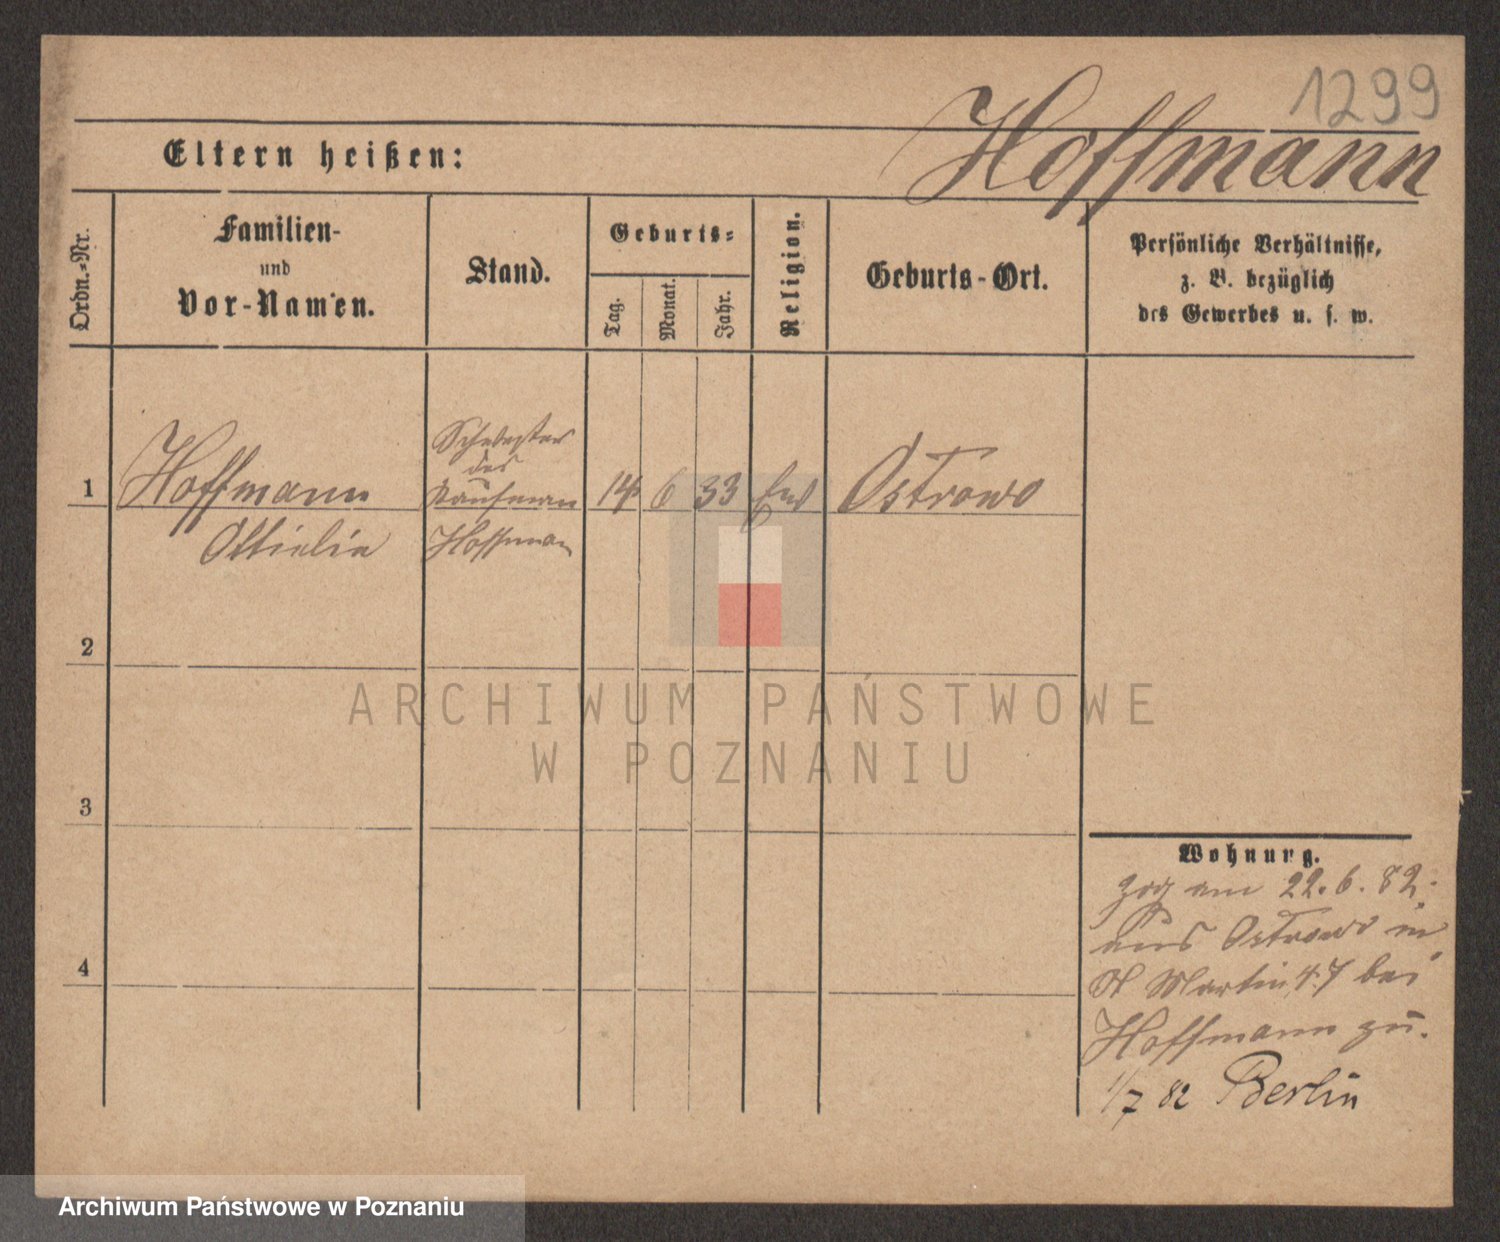 1299
Hoffmann
Eltern heißen:
Ordn.-Nr.
Familien-
und
Vor-Namen.
Stand.
Geburts-
Tag.
Monat.
Jahr.
Religion.
Geburts-Ort.
Persönliche Verhältnisse,
z. B. bezüglich
des Gewerbes u. s. w.
1
Hoffmann
Ottielie
Schwester
des
Kaufmann
Hoffmann
14
6
33
Ostrowo
2
ARCHIWUM PAŃSTWOWE
W POZNANIU
3
4
Wohnung.
zog am 22.6.82.
aus Ostrowo in
St Martin 47 bei
Hoffmann zu.
1/7 82 Berlin
Archiwum Państwowe w Poznaniu